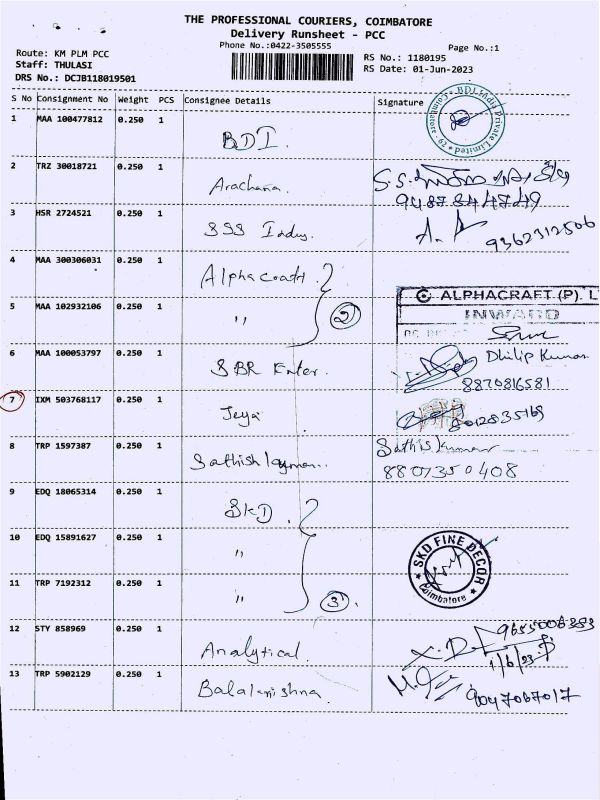 THE PROFESSIONAL COURIERS, COIMBATORE
Delivery Runsheet - PCC
Phone No.:0422-3505555
Page No.:1
Route: KM PLM PCC
Staff: THULASI
DRS No.: DCJB118019501
RS No.: 1180195
RS Date: 01-Jun-2023
S No Consignment No Weight PCS Consignee Details Signature
1 MAA 100477812 0.250 1 BDI
BDI India Private Limited * Coimbatore - 29 *
2 TRZ 30018721 0.250 1 Arachana.
9487844749
3 HSR 2724521 0.250 1 SSS Indus.
9362312506
4 MAA 300306031 0.250 1 Alphacraft
5 MAA 102932106 0.250 1 "
2
© ALPHACRAFT (P). L
INWARD
6 MAA 100053797 0.250 1 SBR Enter.
Dhilip Kumar
8870816581
7 IXM 503768117 0.250 1 Jeya
8012835169
8 TRP 1597387 0.250 1 Sathish
Sathis kumar
8807350408
9 EDQ 18065314 0.250 1 SKD.
10 EDQ 15891627 0.250 1 "
11 TRP 7192312 0.250 1 "
3.
SKD FINE DECOR
* Coimbatore *
12 STY 858969 0.250 1 Analytical.
1/6/23
13 TRP 5902129 0.250 1 Balakrishna
9047067017